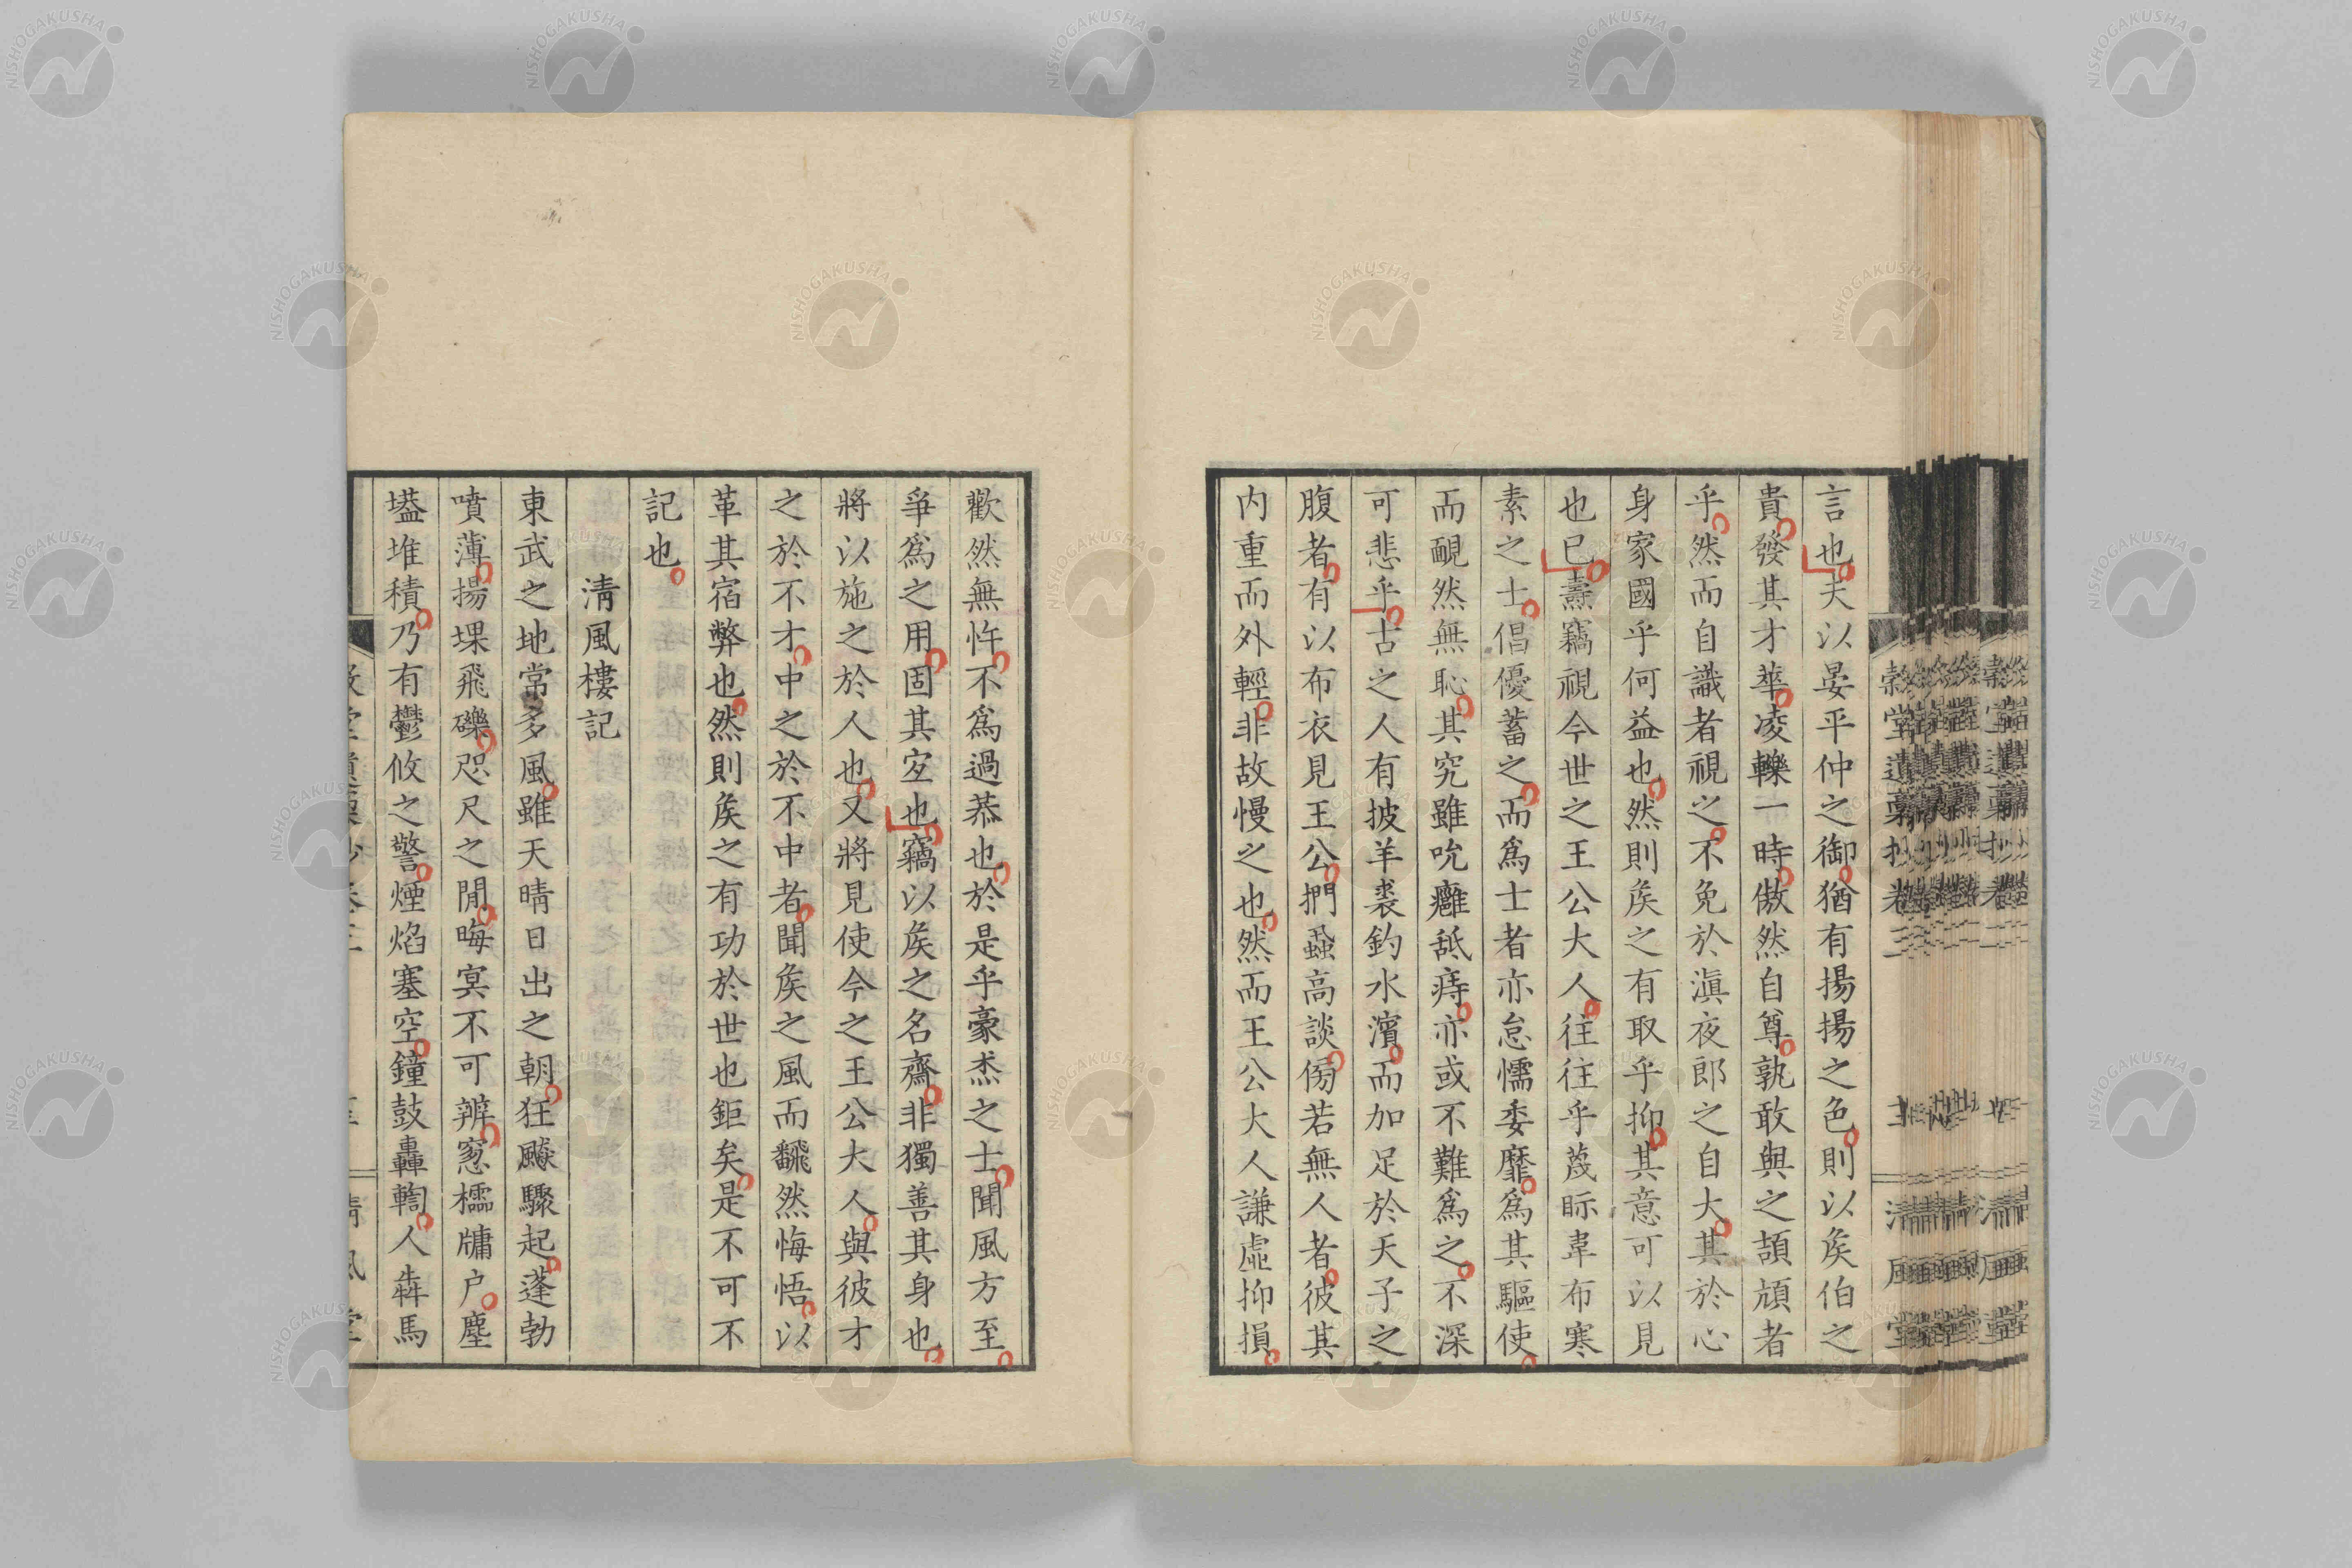 言也夫以晏平仲之御猶有揚揚之色則以矦伯之
貴發其才華凌轢一時傲然自尊孰敢與之頡頏者
乎然而自識者視之不免於滇夜郎之自大其於心
身家國乎何益也然則矦之有取乎抑其意可以見
也已燾竊視今世之王公大人往往乎蔑眎韋布寒
素之士倡優蓄之而爲士者亦怠懦委靡爲其驅使
而靦然無恥其究雖吮癰舐痔亦或不難爲之不深
可悲乎古之人有披羊裘釣水濵而加足於天子之
腹者有以布衣見王公捫蝨高談傍若無人者彼其
内重而外輕非故慢之也然而王公大人謙虛抑損
歡然無忤不爲過恭也於是乎豪杰之士聞風方至
爭爲之用固其宐也竊以矦之名齋非獨善其身也
將以施之於人也又將見使今之王公大人與彼才
之於不才中之於不中者聞矦之風而飜然悔悟以
革其宿弊也然則矦之有功於世也鉅矣是不可不
記也
淸風樓記
東武之地常多風雖天晴日出之朝狂飈驟起蓬勃
噴薄揚堁飛礫咫尺之閒晦冥不可辨窓櫺牗户塵
壒堆積乃有鬱攸之警煙焰塞空鐘鼓轟輷人犇馬
NISHOGAKUSHA